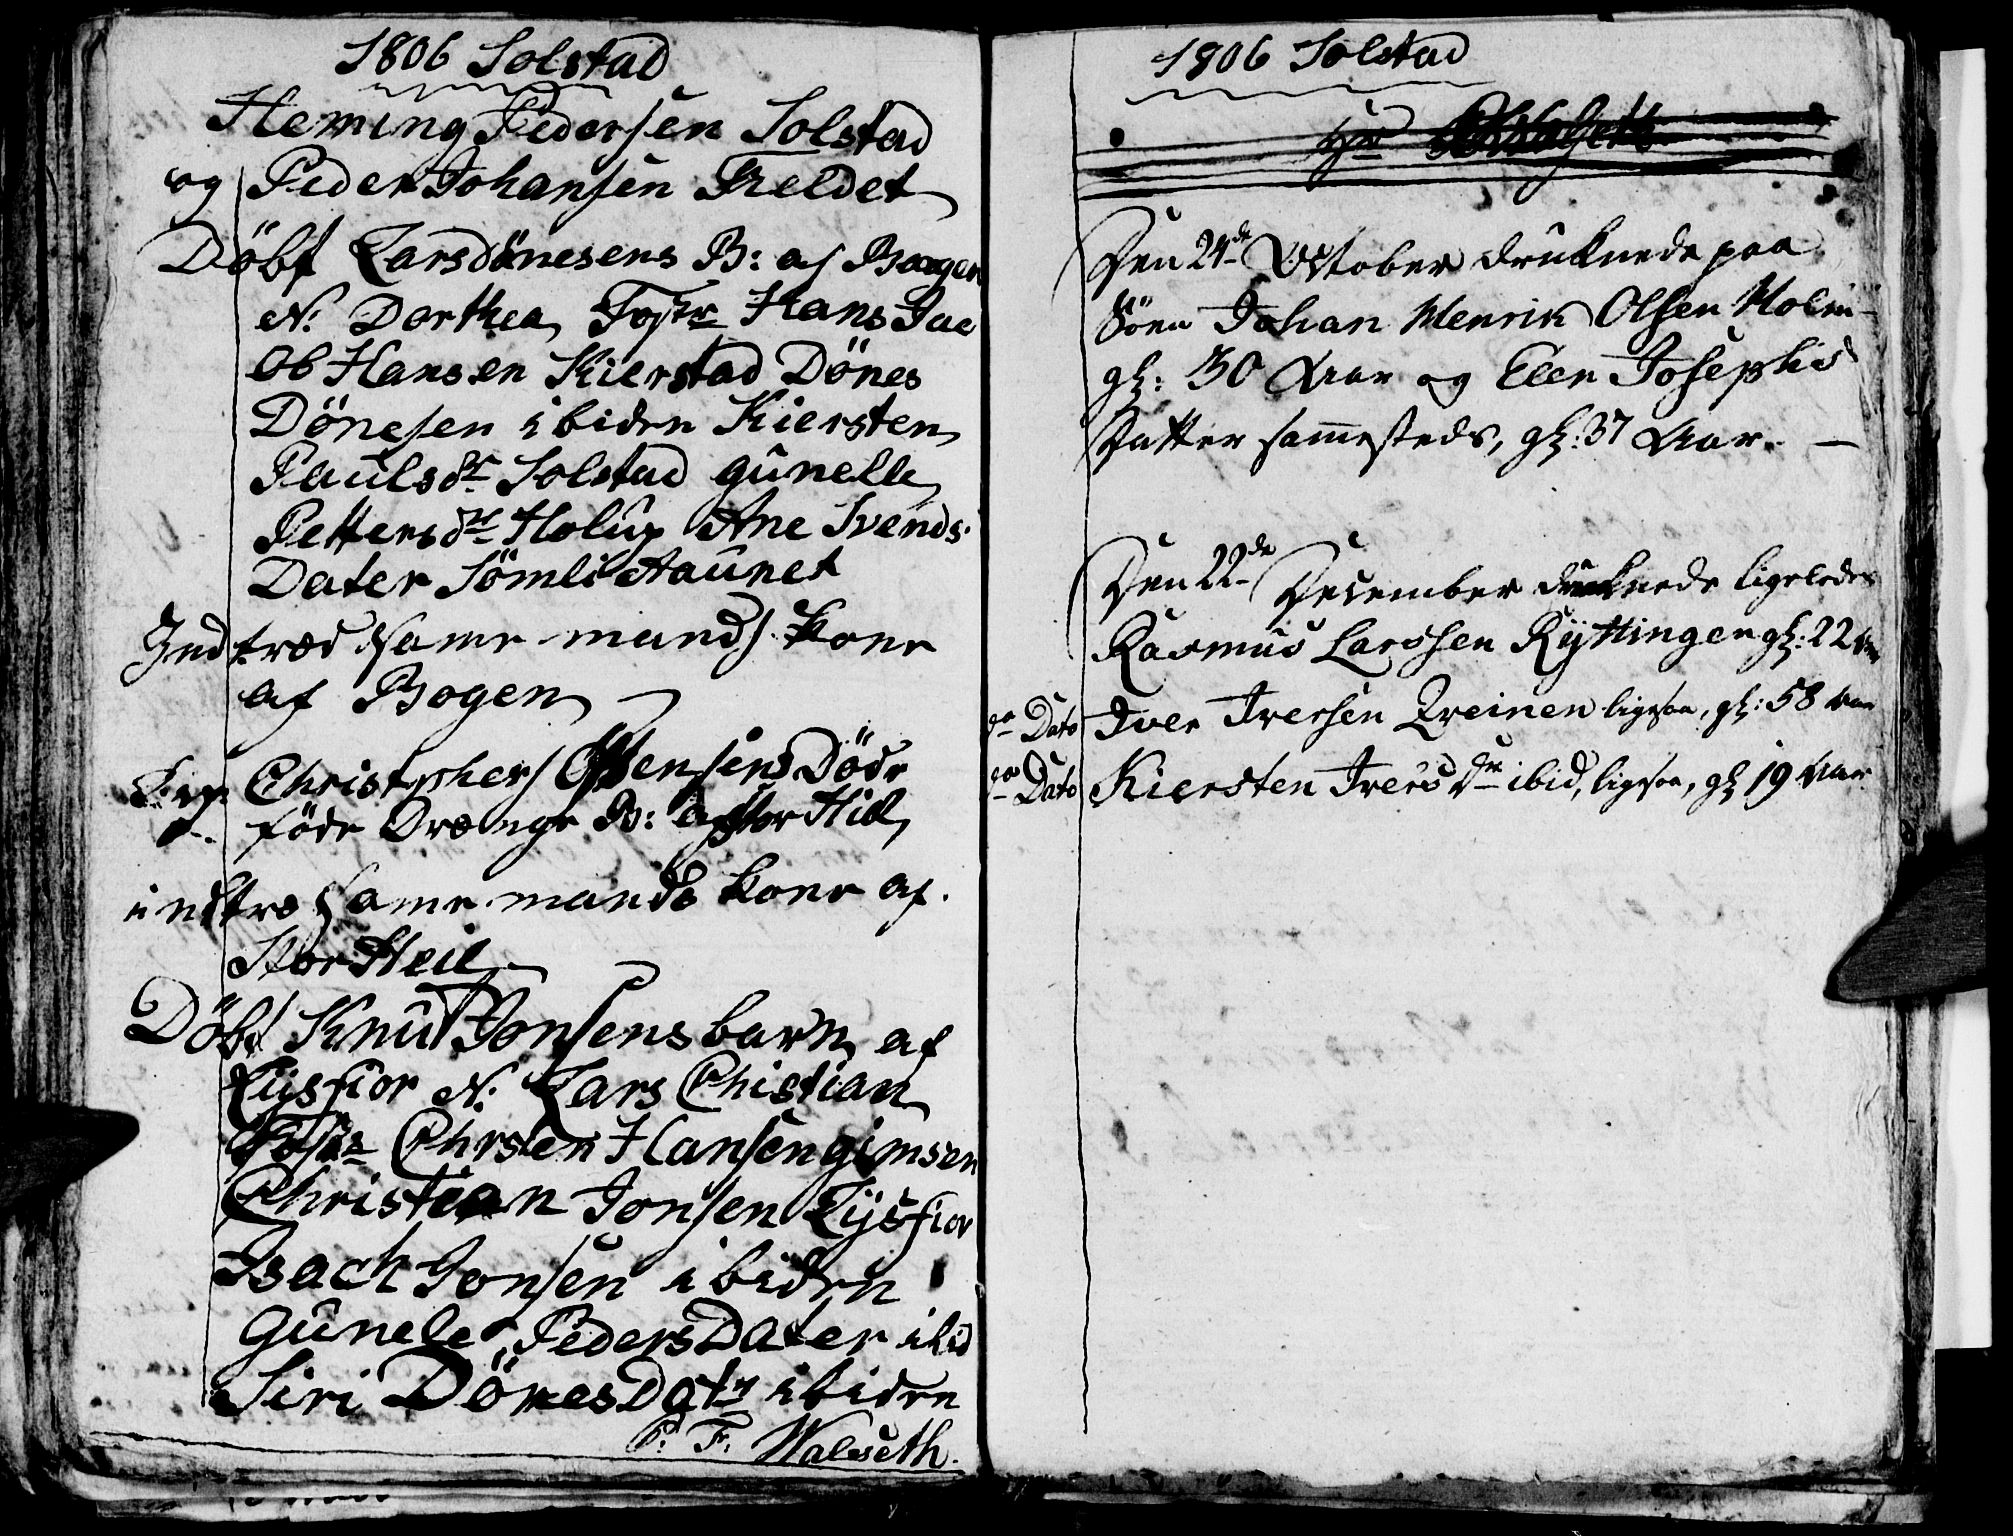 1806 Solstad
Heming Pedersen Solstad
og Peder Johansen Feldet
Döbt Lars Dönesens B: af Bogen
N. Dorthea, Fadr Hans Jac
ob Hansen Kierstad Dönes
Dönesen ibiden Kiersten
Paulsdr Solstad Gunelle
Pettersdr Holup Ane Svends
Dater Sömli Haunet
Indtræd Same mands kone
af Bogen
Christopher Döde
föde Drænge B: af Stor Hiel
indtre Same mands kone af
Stor Heil
Döbt Knut Jonsens barn af
Lysfior N. Lars Chistian
Fadr Chrsten Hansen Gimsen
Christian Jonsen Lysfior
Isach Jonsen ibiden
Gunele PedersDater ibid
Siri DönesDatr ibiden
P. F. Walseth.
1806 Solstad
Den 24de October druknede paa
Söen Johan Henrik Olsen Holm
gl: 30 Aar og Elen Josephs
Datter sammesteds, gl: 37 Aar. —
Den 22de December druknede ligeledes
Rasmus Larssen Ryttingen gl: 22 Aar
do Dato Iver Iversen Qreinen ligesaa, gl: 58 Aar
do Dato Kiersten Ivers Dr ibid, ligesaa, gl 19 Aar